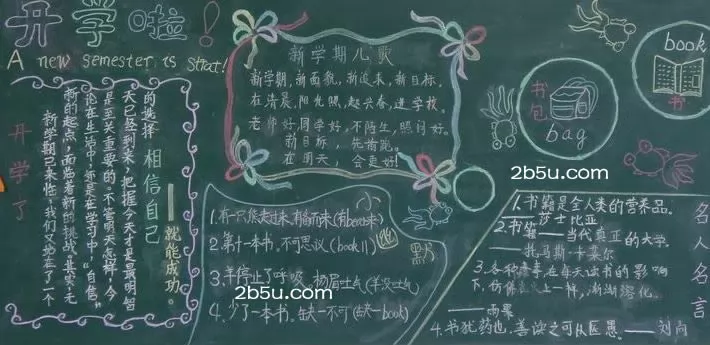 开学啦!
A new semester is start!
开学了
新学期已来临,我们又站在了一个
新的起点,面临着新的挑战。其实,无
论在生活中,还是在学习中,"自信"
是至关重要的。不管明天怎样,今
天已经到来,把握今天才是最明智
的选择。相信自己
——就能成功。
新学期儿歌
新学期,新面貌,新
新目标,
在清晨,阳光照,起
进学校。
老师好,同学好,不陌生,照问好。
新目标,先
跑。
在明天,会更好
小幽默
1.有一只熊走过来,有备而来(有bear来)
2.第十一本书,不可思议(book 11)
3.羊停止了呼吸,扬眉吐气(羊没吐气)
4.少了一本书,缺一不可(缺一book)
书包
bag
book
书
2b5u.com
2b5u.com
2b5u.com
名人名言
1.书籍是全人类的营养品。
——莎士比亚
2.书籍——当代真正的大学。
——托马斯·卡莱尔
3.各种蠢事在每天读书的影响
下,仿佛
上一样,渐渐溶化。
——雨果
4.书犹药也,善读之可以医愚。——刘向